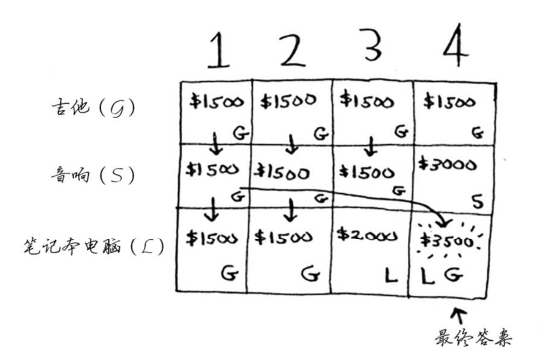 1 2 3 4
吉他（G） $1500 G $1500 G $1500 G $1500 G
音响（S） $1500 G $1500 G $1500 G $3000 S
笔记本电脑（L） $1500 G $1500 G $2000 L $3500 L G
最终答案